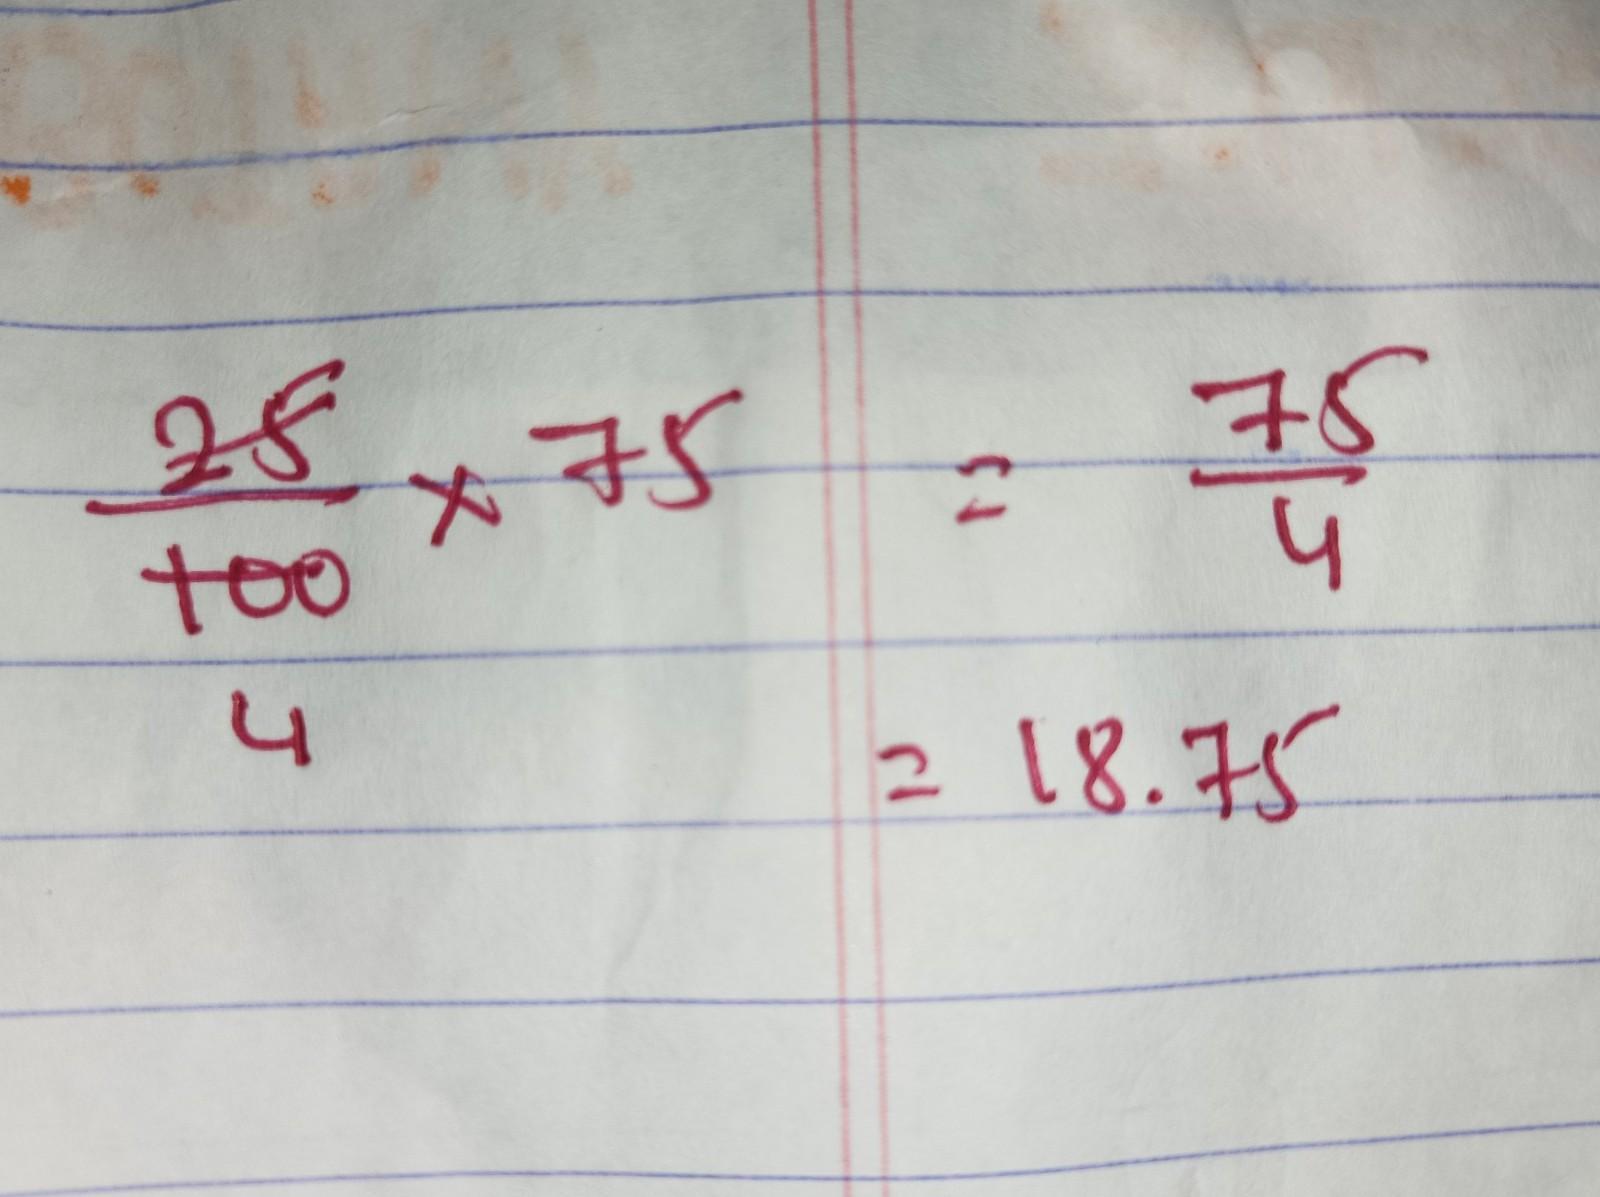 25/100 × 75 = 75/4
4
= 18.75